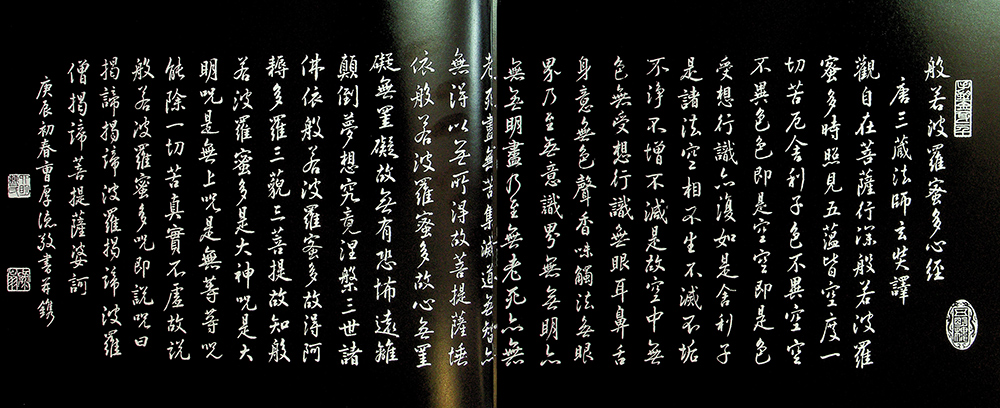 般若波羅蜜多心經
唐三藏法師玄奘譯
觀自在菩薩行深般若波羅
蜜多時照見五蘊皆空度一
切苦厄舍利子色不異空空
不異色色即是空空即是色
受想行識亦復如是舍利子
是諸法空相不生不滅不垢
不淨不增不減是故空中無
色無受想行識無眼耳鼻舌
身意無色聲香味觸法無眼
界乃至無意識界無無明亦
無無明盡乃至無老死亦無
老死盡無苦集滅道無智亦
無得以無所得故菩提薩埵
依般若波羅蜜多故心無罣
礙無罣礙故無有恐怖遠離
顛倒夢想究竟涅槃三世諸
佛依般若波羅蜜多故得阿
耨多羅三藐三菩提故知般
若波羅蜜多是大神呪是大
明呪是無上呪是無等等呪
能除一切苦真實不虛故說
般若波羅蜜多呪即說呪曰
揭諦揭諦波羅揭諦波羅
僧揭諦菩提薩婆訶
庚辰初春重厚流敬書并鐫